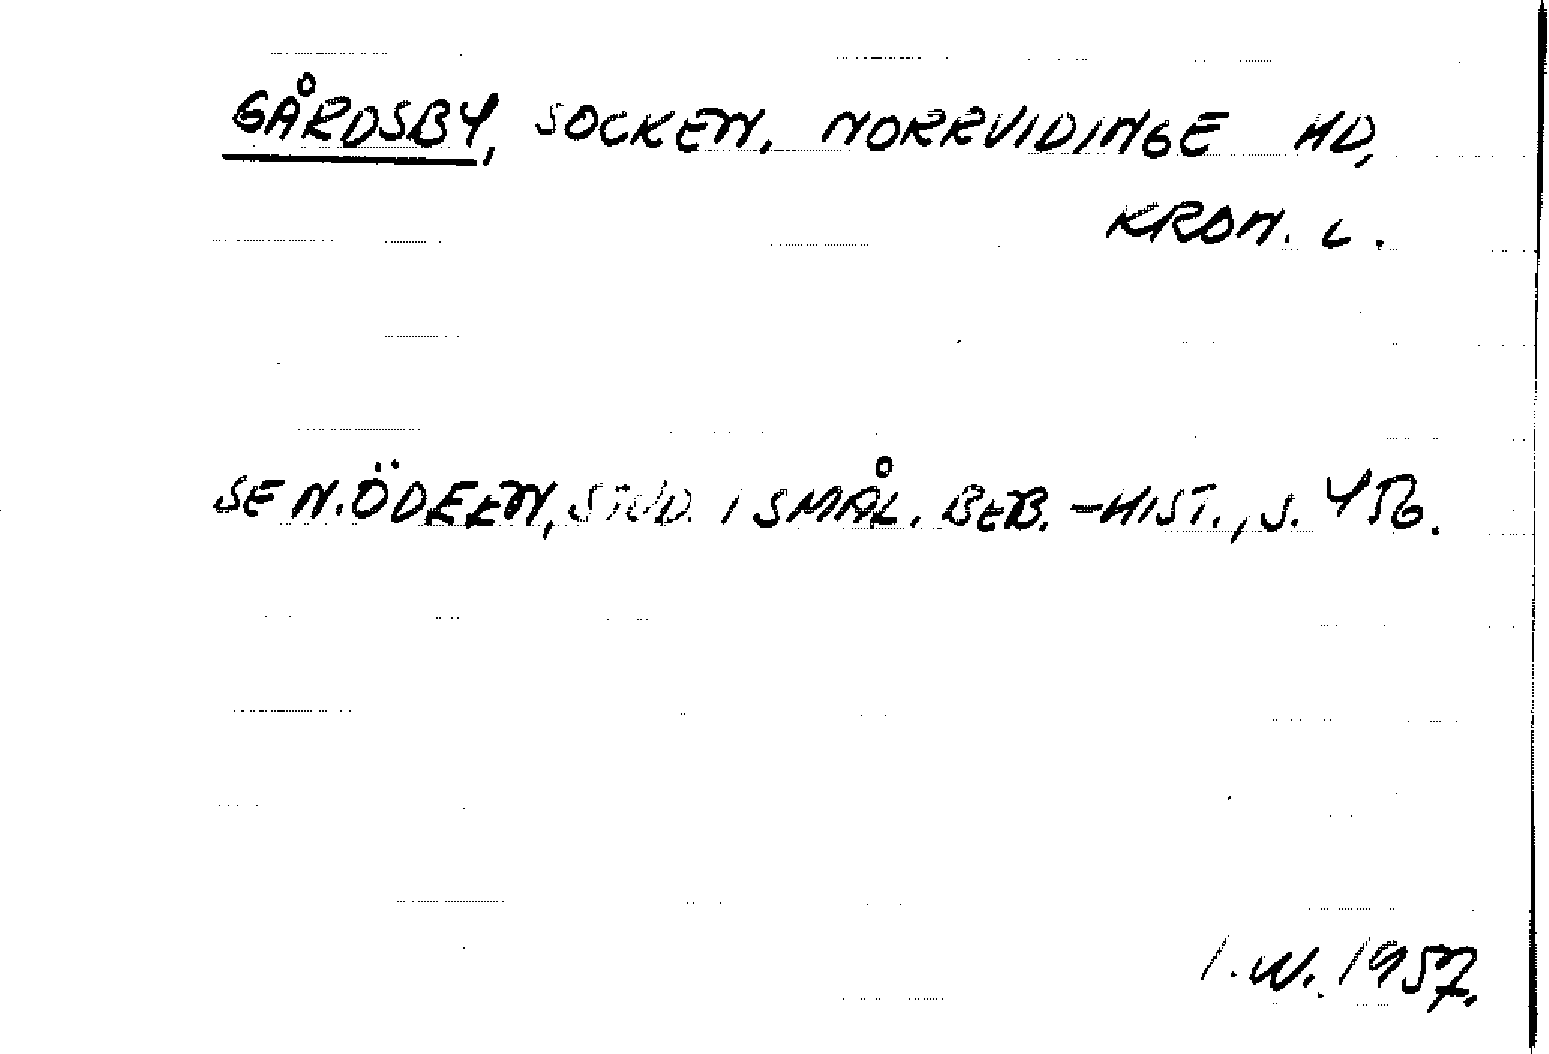 GÅRDSBY, SOCKEN, NORRVIDINGE HD,
KRON. L.
SE N. ÖDEEN, STUD. I SMÅL. BEB.-HIST., S. 456.
I. W. 1957.